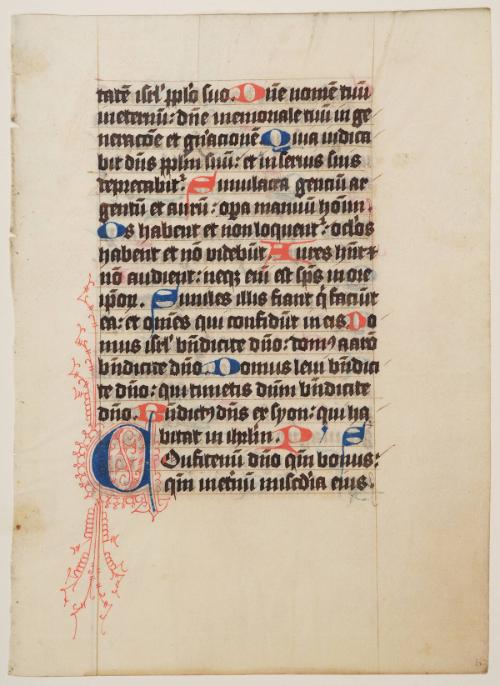 tatē isrl' pplo suo. Dn̄e nomē tuū
in eternū: dn̄e memoriale tuū in ge
neracōe et gn̄acionē Quia iudica
bit dn̄s pplm̄ suū: et in seruis suis
deprecabit᷑. Simulacra genciū ar
gentū et aurū: opa manuū hoīm
Os habent et non loquent᷑: oclos
habent et nō videbūt Aures hn̄t ⁊
nō audient: neqꝫ em̄ est spūs in ore
ipōr. Similes illis fiant q̇ faciūt
ea: et om̄es qui confidūt in eis Do
mus isrl' bn̄dicite dn̄o: domꝰ aarō
bn̄dicite dn̄o. Domus leui bn̄dici
te dn̄o: qui timetis dn̄m bn̄dicite
dn̄o. Bn̄dictꝰ dn̄s ex syon: qui ha
bitat in ihrlm̄. P S
Confitemī dn̄o qm̄ bonus:
qm̄ in et̄nū misc̄dia eius.